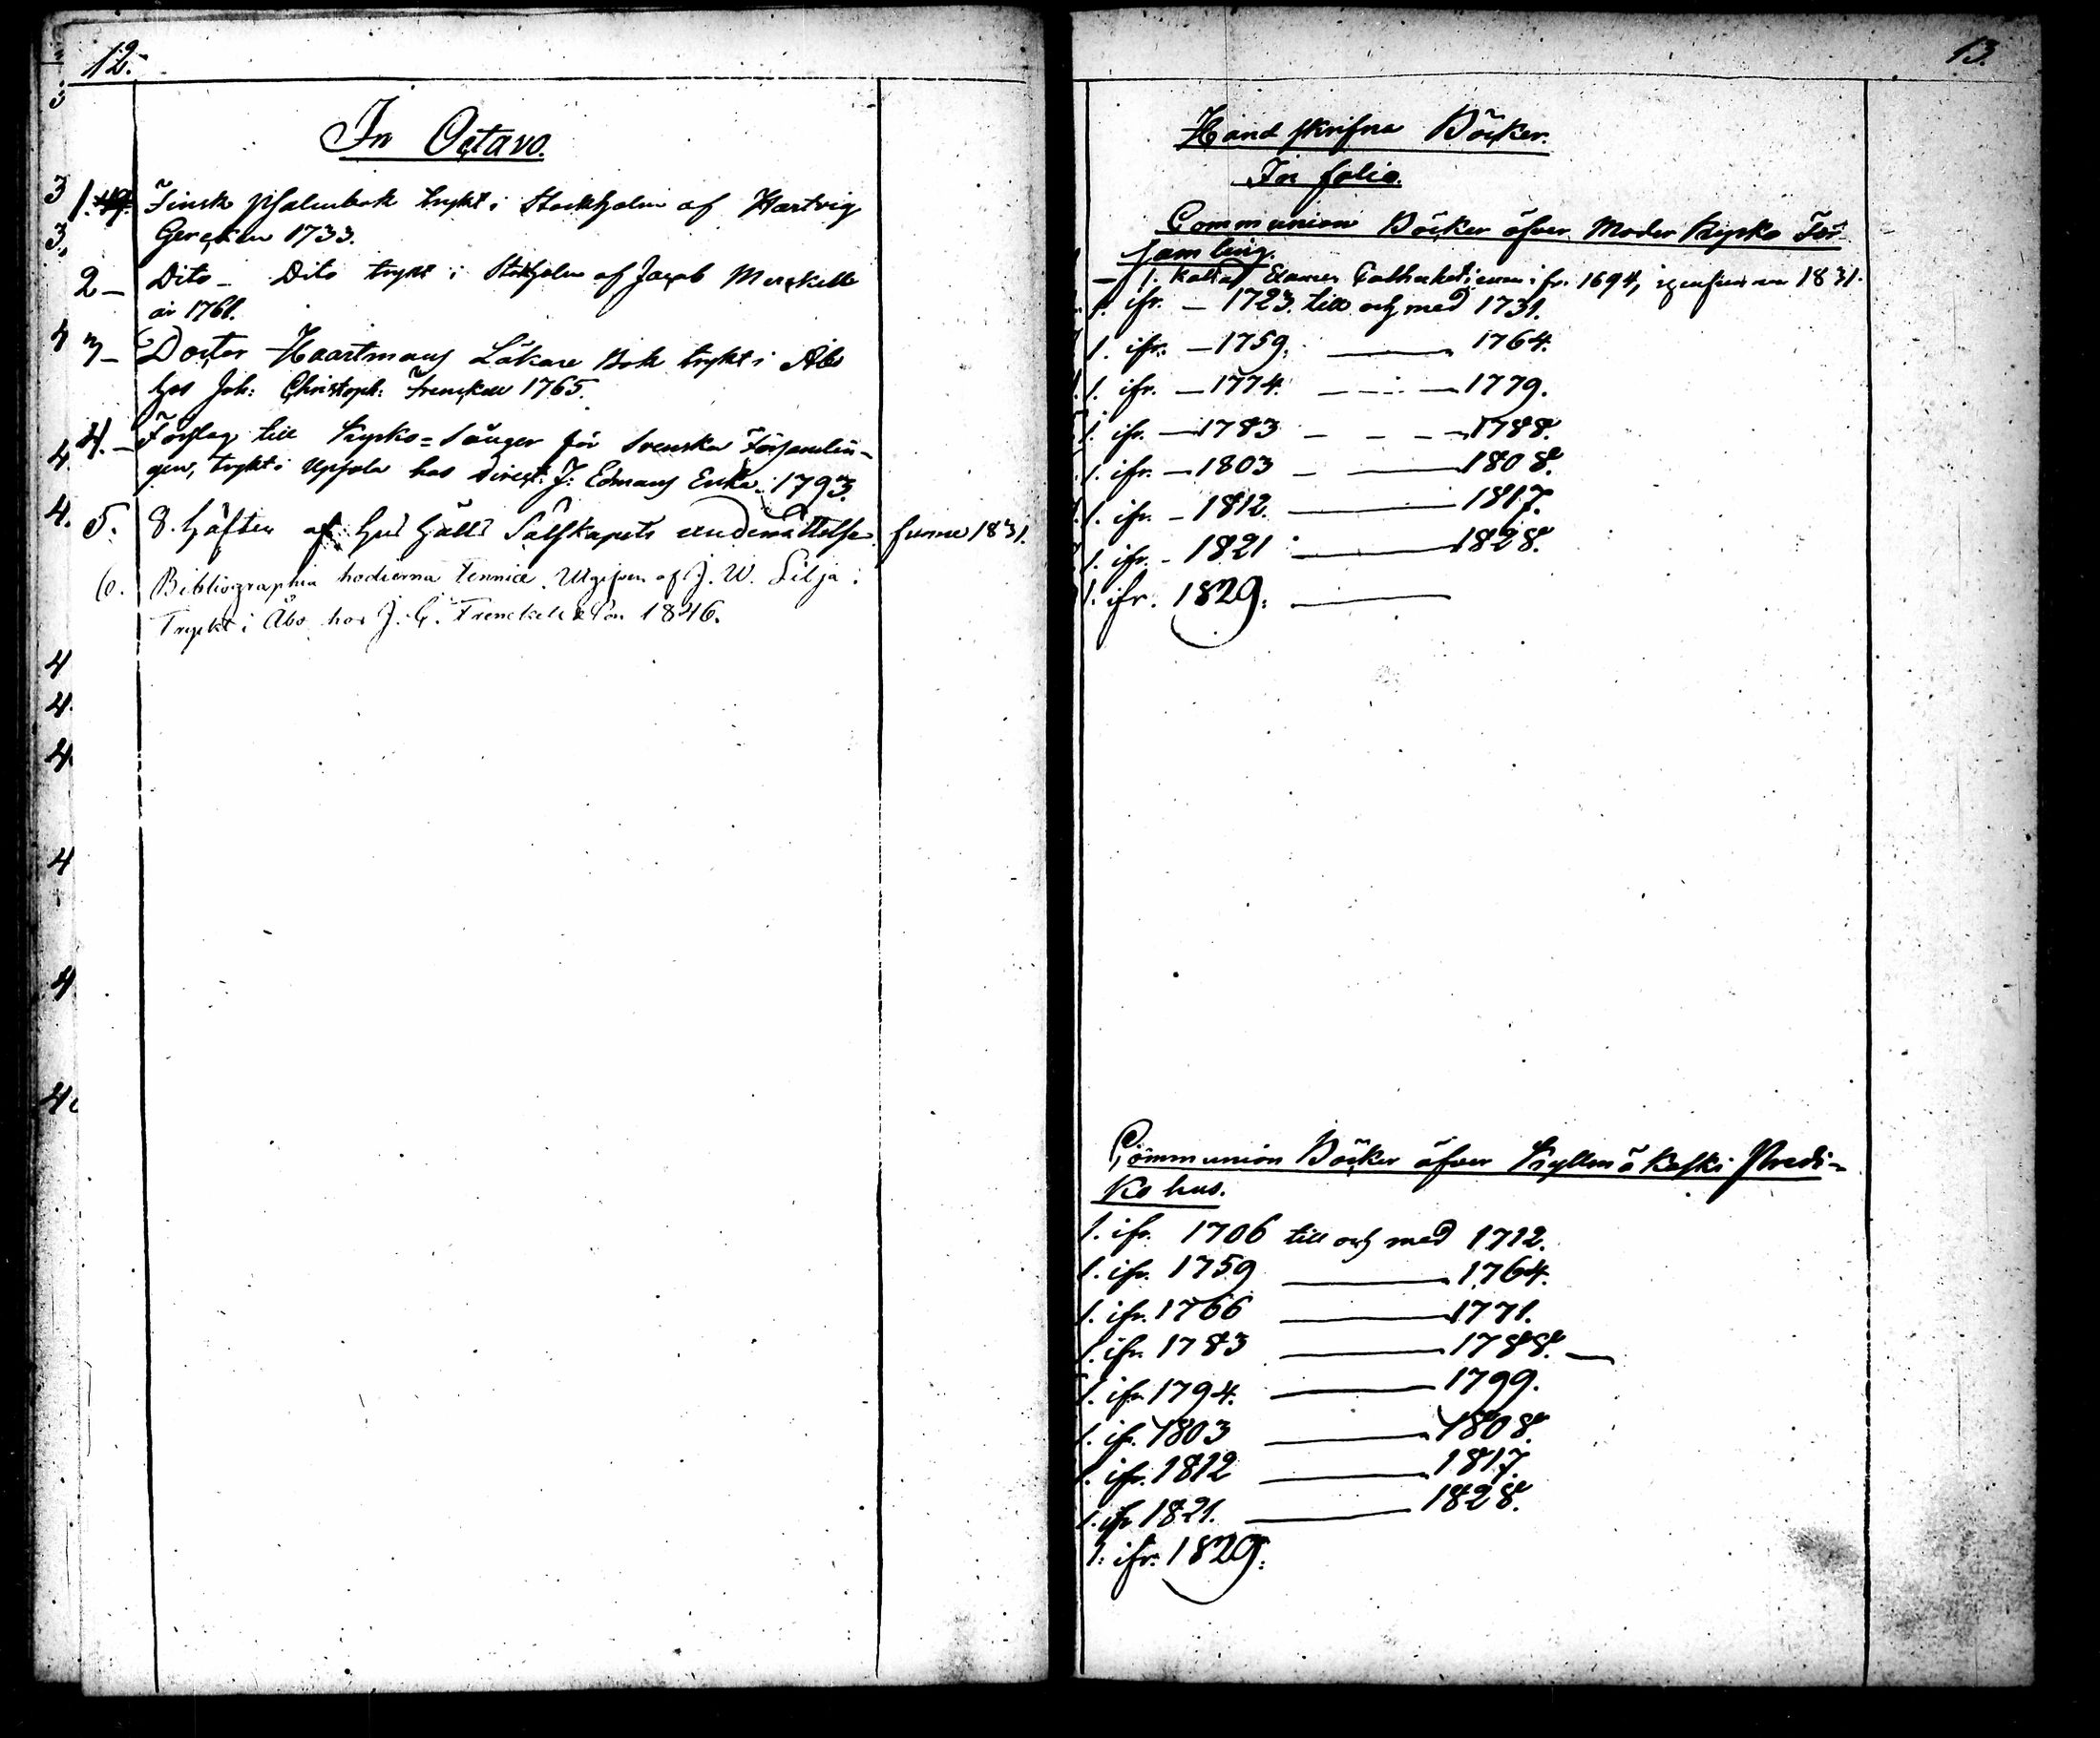 12.
In Octavo.
1. Finsk Psalmbok trykt i Stockholm af Hartvig
Gercken 1733.
2 — Dito — Dito trykt i Stokholm af Jacob Merckell
år 1761.
3 — Doctor Haartmans Läkare Bok trykt i Åbo
hos Joh: Christoph: Frenckell 1765.
4. — Förslag till Kyrko-Sånger för Svenska Församlin-
gen, trykt i Upsala hos Direct. J: Edmans Enka 1793.
5. 8. häften af Hus hålls Sälskapets underrättelser funne 1831.
6. Bibliographia hodierna Fennica. Utgifven af J. W. Lilja:
Tryckt i Åbo hos J. C. Frenckell & Son 1846.
13.
Hand skrifna Böcker.
In folio.
Communion Böcker öfver Moder Kyrko För
samling.
— 1. kallas Examen Catheketicum ifr. 1694, igenfunnen 1831.
1. ifr. — 1723. till och med 1731.
1. ifr. — 1759. — 1764.
1. ifr. — 1774. — 1779.
1. ifr. — 1783 — 1788.
1. ifr. — 1803 — 1808.
1. ifr. — 1812. — 1817.
1. ifr. — 1821 — 1828.
1. ifr. 1829. —
Communion Böcker öfver Kyllmäkoski Predi-
ko hus.
1. ifr. 1706 till och med 1712.
1. ifr. 1759 — 1764.
1. ifr. 1766 — 1771.
1. ifr. 1783 — 1788. —
1. ifr. 1794. — 1799.
1. ifr. 1803 — 1808.
1. ifr. 1812 — 1817.
1. ifr 1821. — 1828.
1. ifr. 1829.